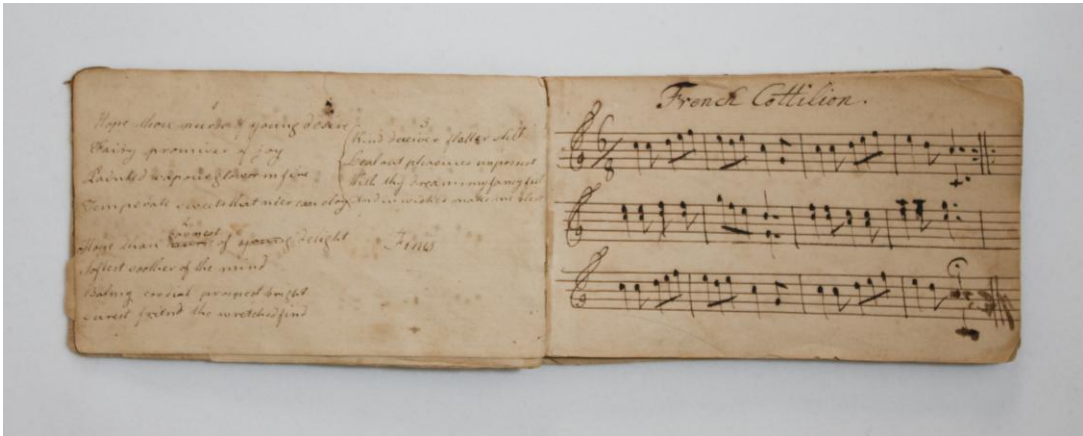 1
Hope thou nurse of young desire
Fairy promiser of joy
Painted vapour glow worm fire
Temperate sweets that neer can cloy
2
Hope thou earnest of young delight
Softest soother of the mind
Balmy cordial prospect bright
Surest friend the wretched find
3
Kind deceiver flatter still
Deal out pleasures unpossest
With thy dreams my fancy fill
And in wishes make me blest
Finis
French Cottilion.
6/8